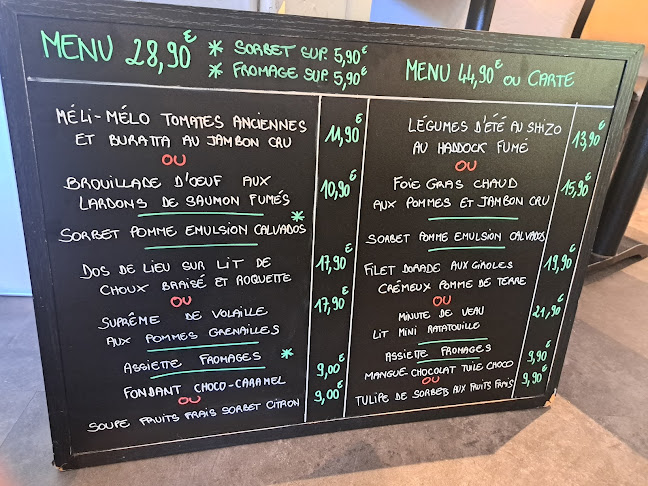 MENU 28,90€
* SORBET SUP. 5,90€
* FROMAGE SUP. 5,90€
MÉLI-MÉLO TOMATES ANCIENNES
ET BURATTA AU JAMBON CRU 11,90€
OU
BROUILLADE D'ŒUF AUX
LARDONS DE SAUMON FUMÉS 10,90€
SORBET POMME EMULSION CALVADOS *
DOS DE LIEU SUR LIT DE
CHOUX BRAISÉ ET ROQUETTE 17,90€
OU
SUPRÊME DE VOLAILLE
AUX POMMES GRENAILLES 17,90€
ASSIETTE FROMAGES *
FONDANT CHOCO-CARAMEL 9,00€
OU
SOUPE FRUITS FRAIS SORBET CITRON 9,00€
MENU 44,90€ OU CARTE
LÉGUMES D'ÉTÉ AU SHIZO
AU HADDOCK FUMÉ 13,90€
OU
FOIE GRAS CHAUD
AUX POMMES ET JAMBON CRU 15,90€
SORBET POMME EMULSION CALVADOS
FILET DORADE AUX GIROLES
CRÉMEUX POMME DE TERRE 19,90€
OU
MINUTE DE VEAU
LIT MINI RATATOUILLE 21,90€
ASSIETTE FROMAGES
MANGUE-CHOCOLAT TUILE CHOCO 9,90€
OU
TULIPE DE SORBETS AUX FRUITS FRAIS 9,90€